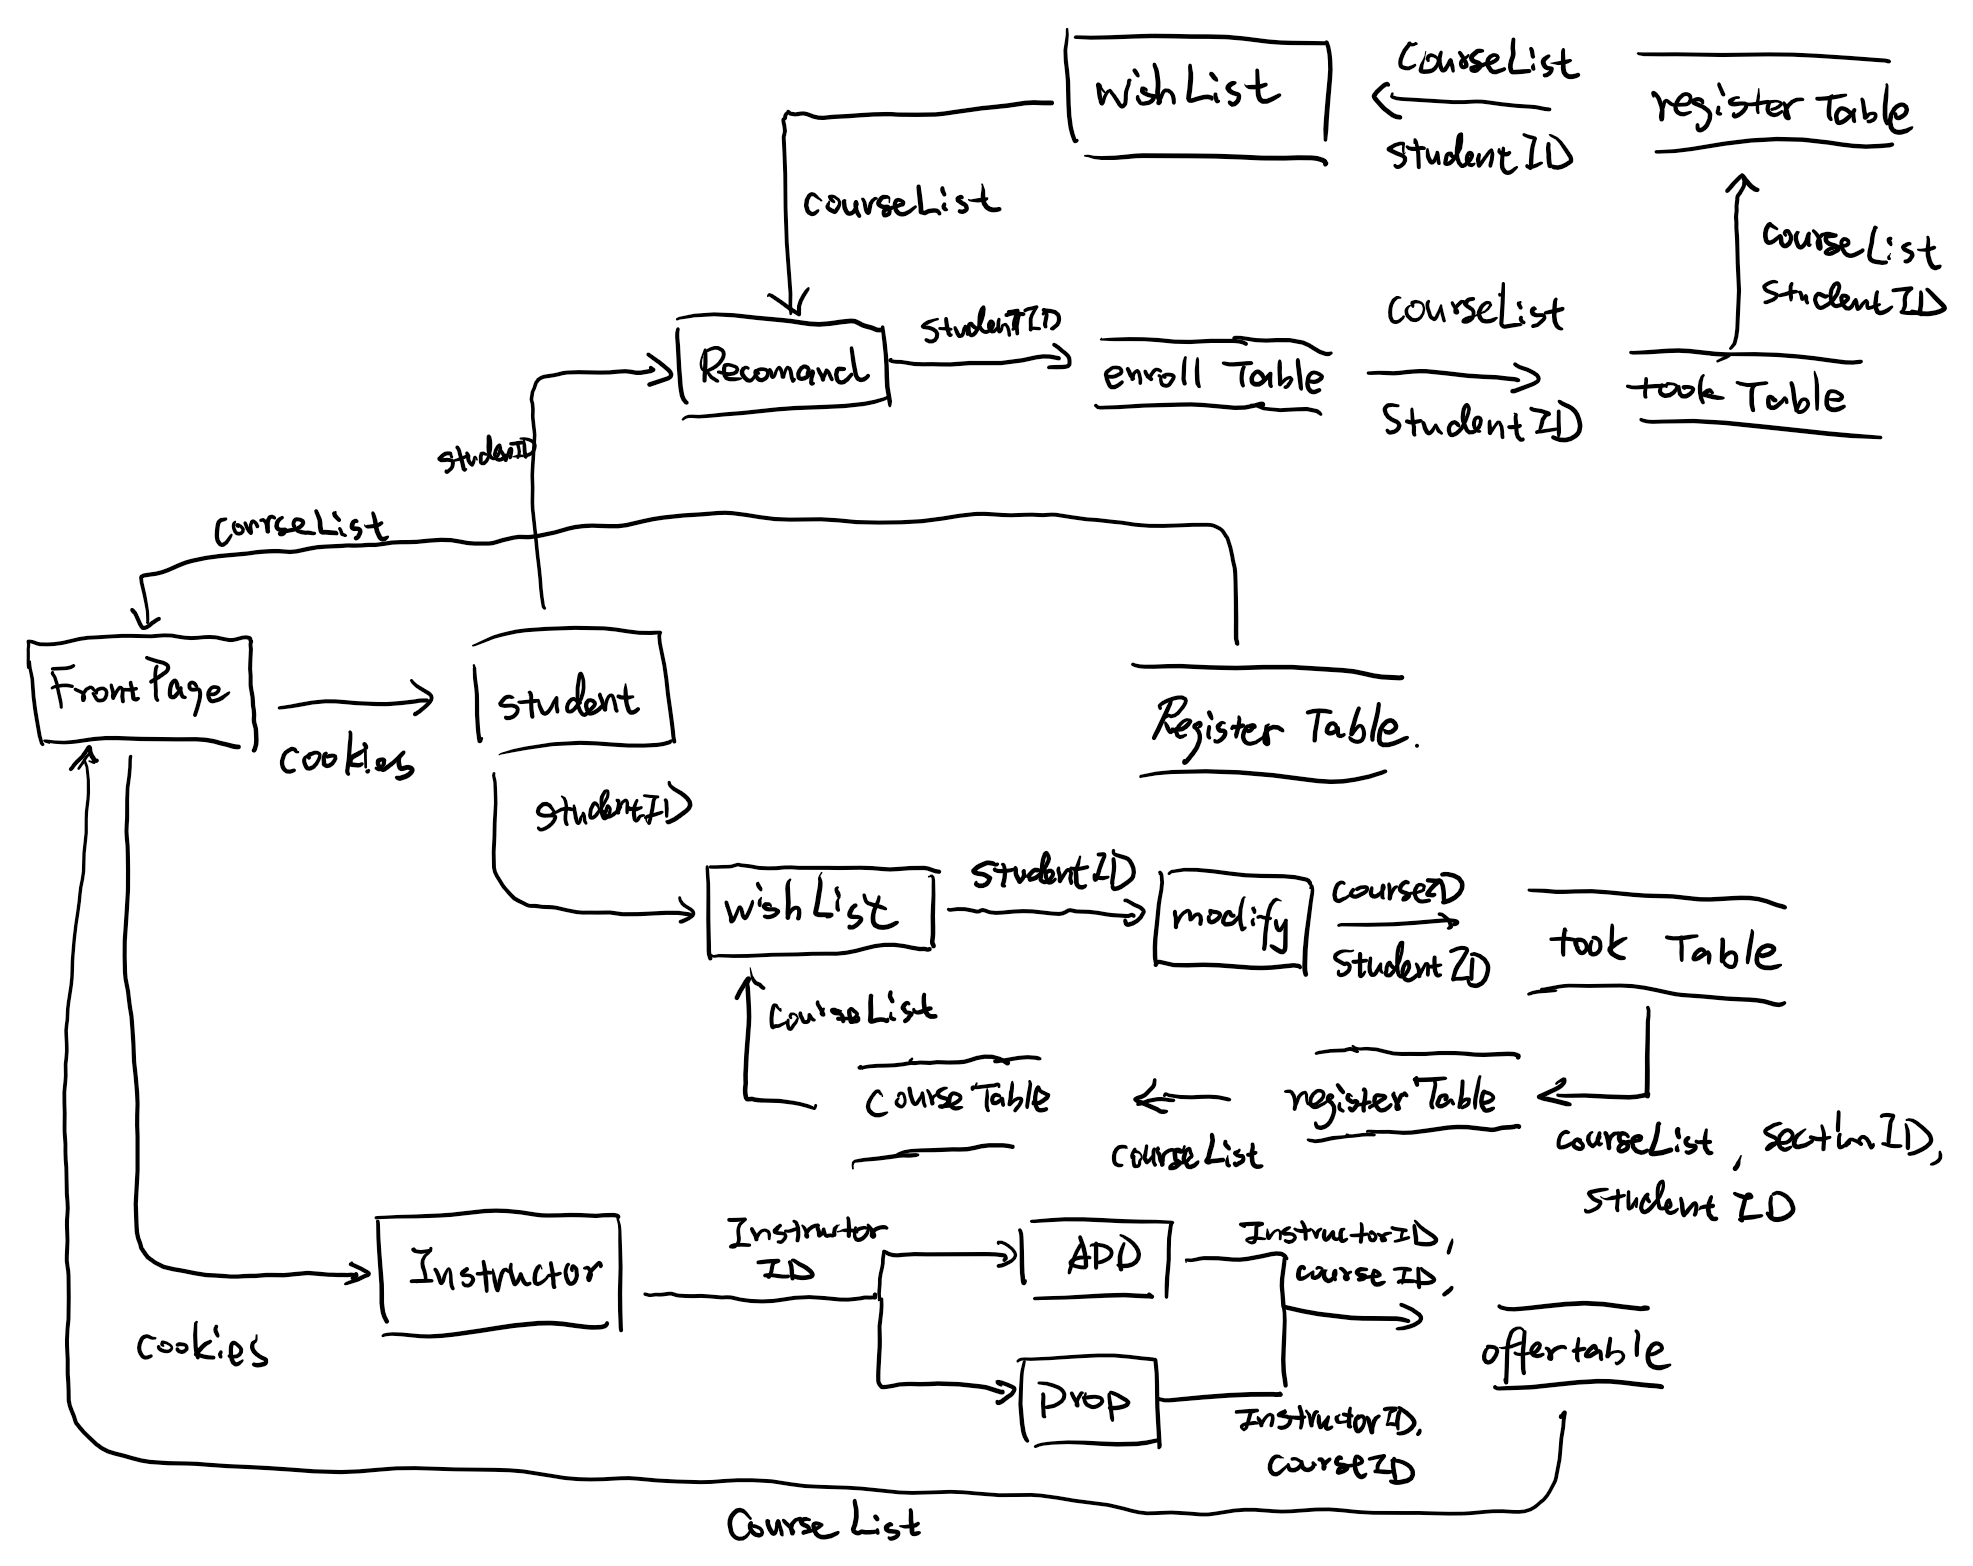 wishList
CourseList
studentID
register Table
courseList
courseList
studentID
Recomand
studentID
enroll Table
courseList
StudentID
took Table
studenID
courseList
FrontPage
cookies
student
Register Table.
studentID
wishList
studentID
modify
courseID
studentID
took Table
courseList
course Table
courseList
register Table
courseList, sectionID,
student ID
Instructor
cookies
Instructor
ID
ADD
InstructorID,
course ID,
Drop
InstructorID,
courseID
offertable
Course List